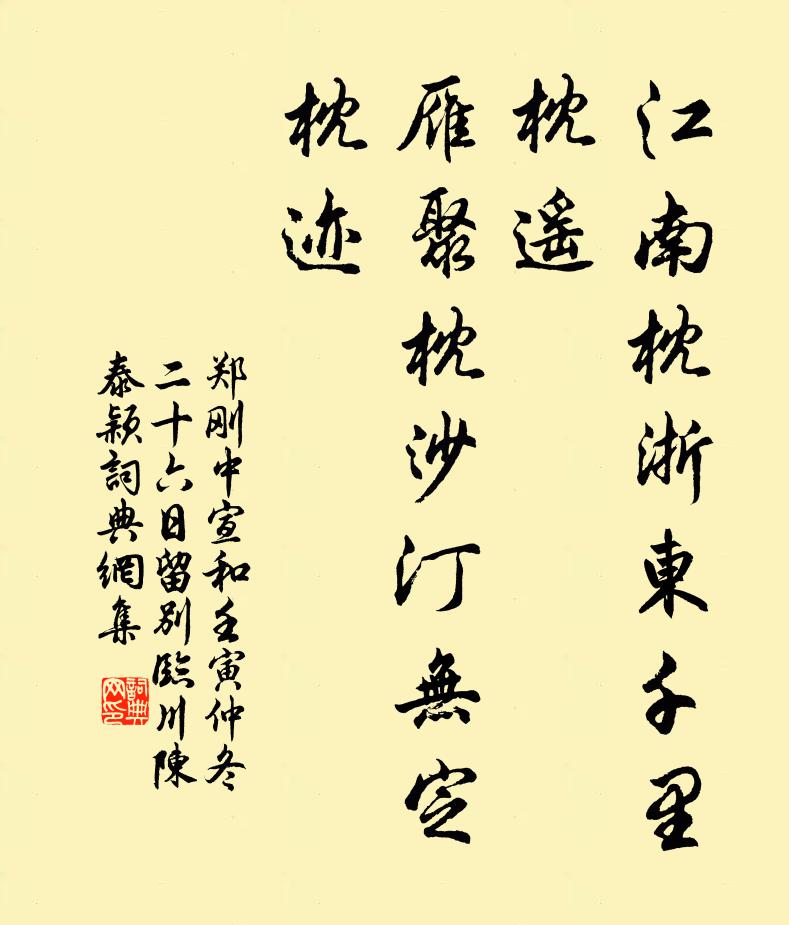 江南枕浙東千里
枕遥
雁聚枕沙汀無定
枕迹
郑刚中宣和壬寅仲冬
二十六日留别臨川陳
泰颖詞典網集
詞典
网印